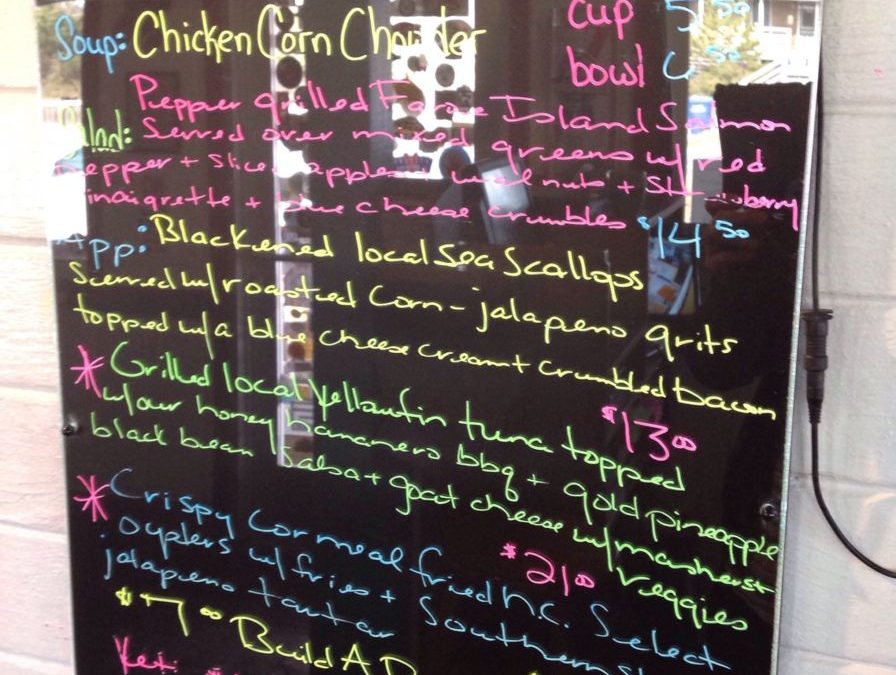 Soup: Chicken Corn Chowder cup 5.50
bowl 6.50
Pepper grilled Faroe Island Salmon
Salad: Served over mixed greens w/ red
pepper + sliced apples walnuts + Strawberry
vinaigrette + blue cheese crumbles $14.50
App: Blackened local Sea Scallops
Served w/ roasted Corn-jalapeno grits
topped w/ a blue cheese cream + crumbled bacon
$13.00
* Grilled local Yellowfin tuna topped
w/ our honey habanero bbq + gold pineapple
black bean salsa + goat cheese w/ mashers +
veggies
$21.00
* Crispy Cornmeal fried N.C. Select
oysters w/ fries + Southern
jalapeno tartar
$7.00 Build A